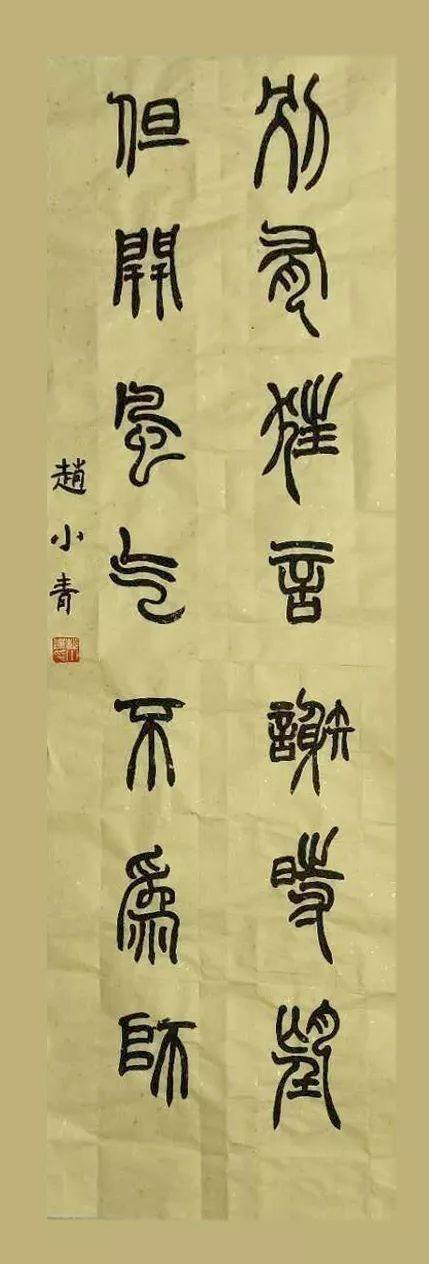 別有狂言謝時望
但開風气不爲師
趙小青